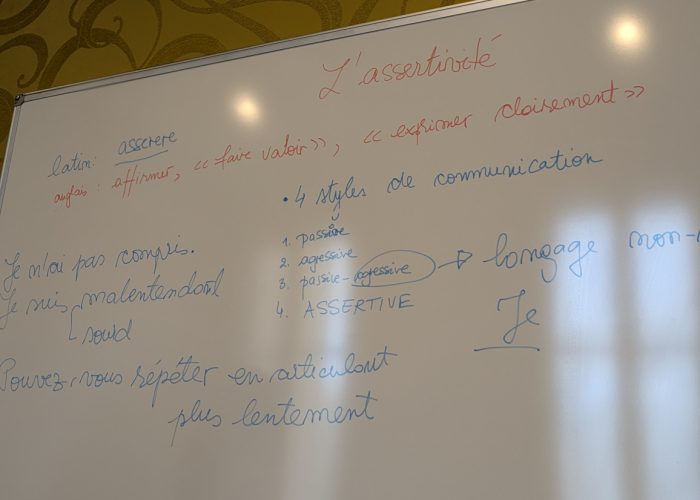 L'assertivité
latin: asserere
anglais: affirmer, « faire valoir », « exprimer clairement »
• 4 styles de communication
1. passive
2. agressive
3. passive-agressive → langage non-
4. ASSERTIVE
Je
Je n'ai pas compris.
Je suis malentendant
sourd
Pouvez-vous répéter en articulant
plus lentement